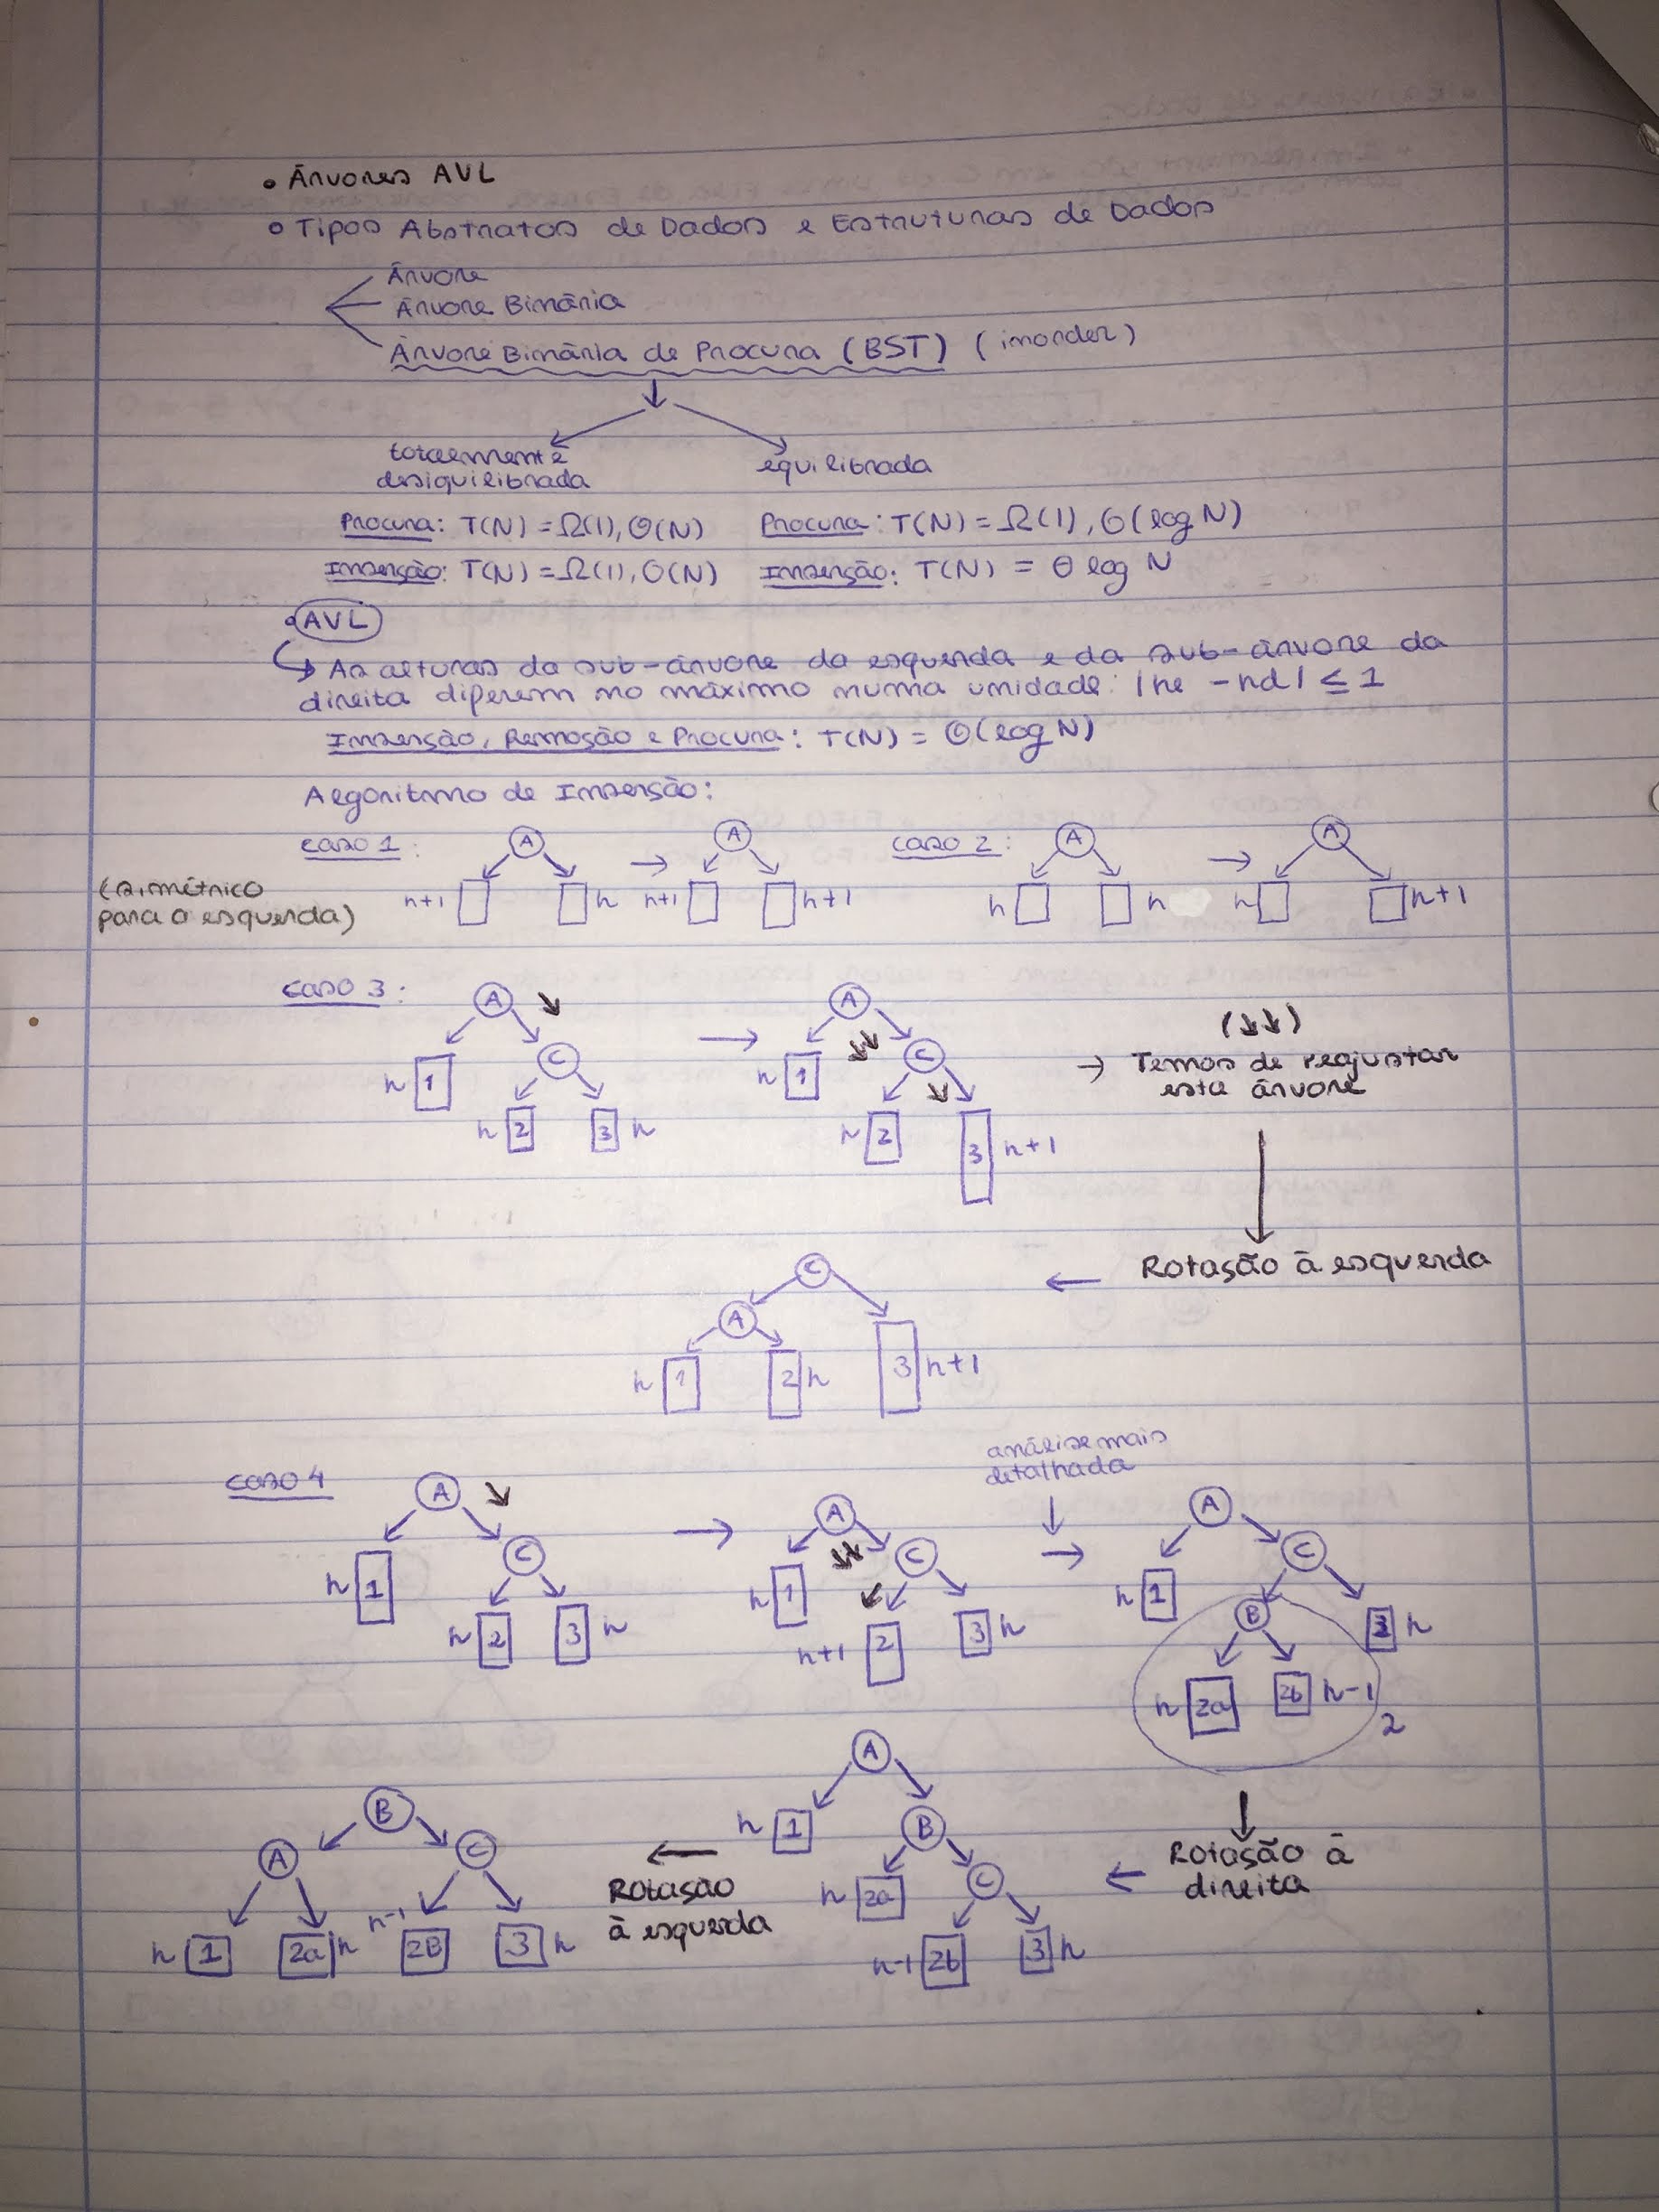 • Árvores AVL
• Tipos Abstratos de Dados e Estruturas de Dados
Árvore
Árvore Binária
Árvore Binária de Procura (BST) (inorder)
totalmente desiquilibrada
equilibrada
Procura: T(N) = Ω(1), O(N) Procura: T(N) = Ω(1), O(log N)
Inserção: T(N) = Ω(1), O(N) Inserção: T(N) = Θ log N
• AVL
↳ As alturas da sub-árvore da esquerda e da sub-árvore da
direita diferem no máximo numa unidade: |he - hd| ≤ 1
Inserção, Remoção e Procura: T(N) = O(log N)
Algoritmo de Inserção:
caso 1: A → A caso 2: A → A
(simétrico
para a esquerda)
h+1 h h+1 h+1 h h h h+1
caso 3: A ↘ → A
C C
h 1 h 1
h 2 3 h h 2 3 h+1
(↘↘)
→ Temos de reajustar
esta árvore
Rotação à esquerda
←
C
A
h 1 2 h 3 h+1
análise mais
detalhada
caso 4 A ↘ → A → A
C C C
h 1 h 1 h 1 B 3 h
h 2 3 h h+1 2 3 h
h 2a 2b h-1
2
Rotação à
direita
←
A
h 1 B
h 2a C
h-1 2b 3 h
←
Rotação
à esquerda
B
A C
h 1 2a h h-1 2B 3 h